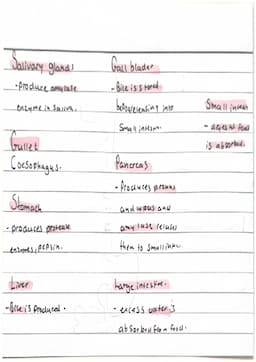 Salivary glands
- produce amylase
enzyme in saliva.
Gullet
(oesophagus.
Stomach
- produces protease
enzymes, pepsin.
Liver
- Bile is produced.
Gall bladder
- Bile is stored
before releasing into
Small intestine.
Pancreas
- Produces protease
and lipase and
amylase releases
them to small
Large intestine.
- excess water is
absorbed from food.
Small
- digested food
is absorbed.